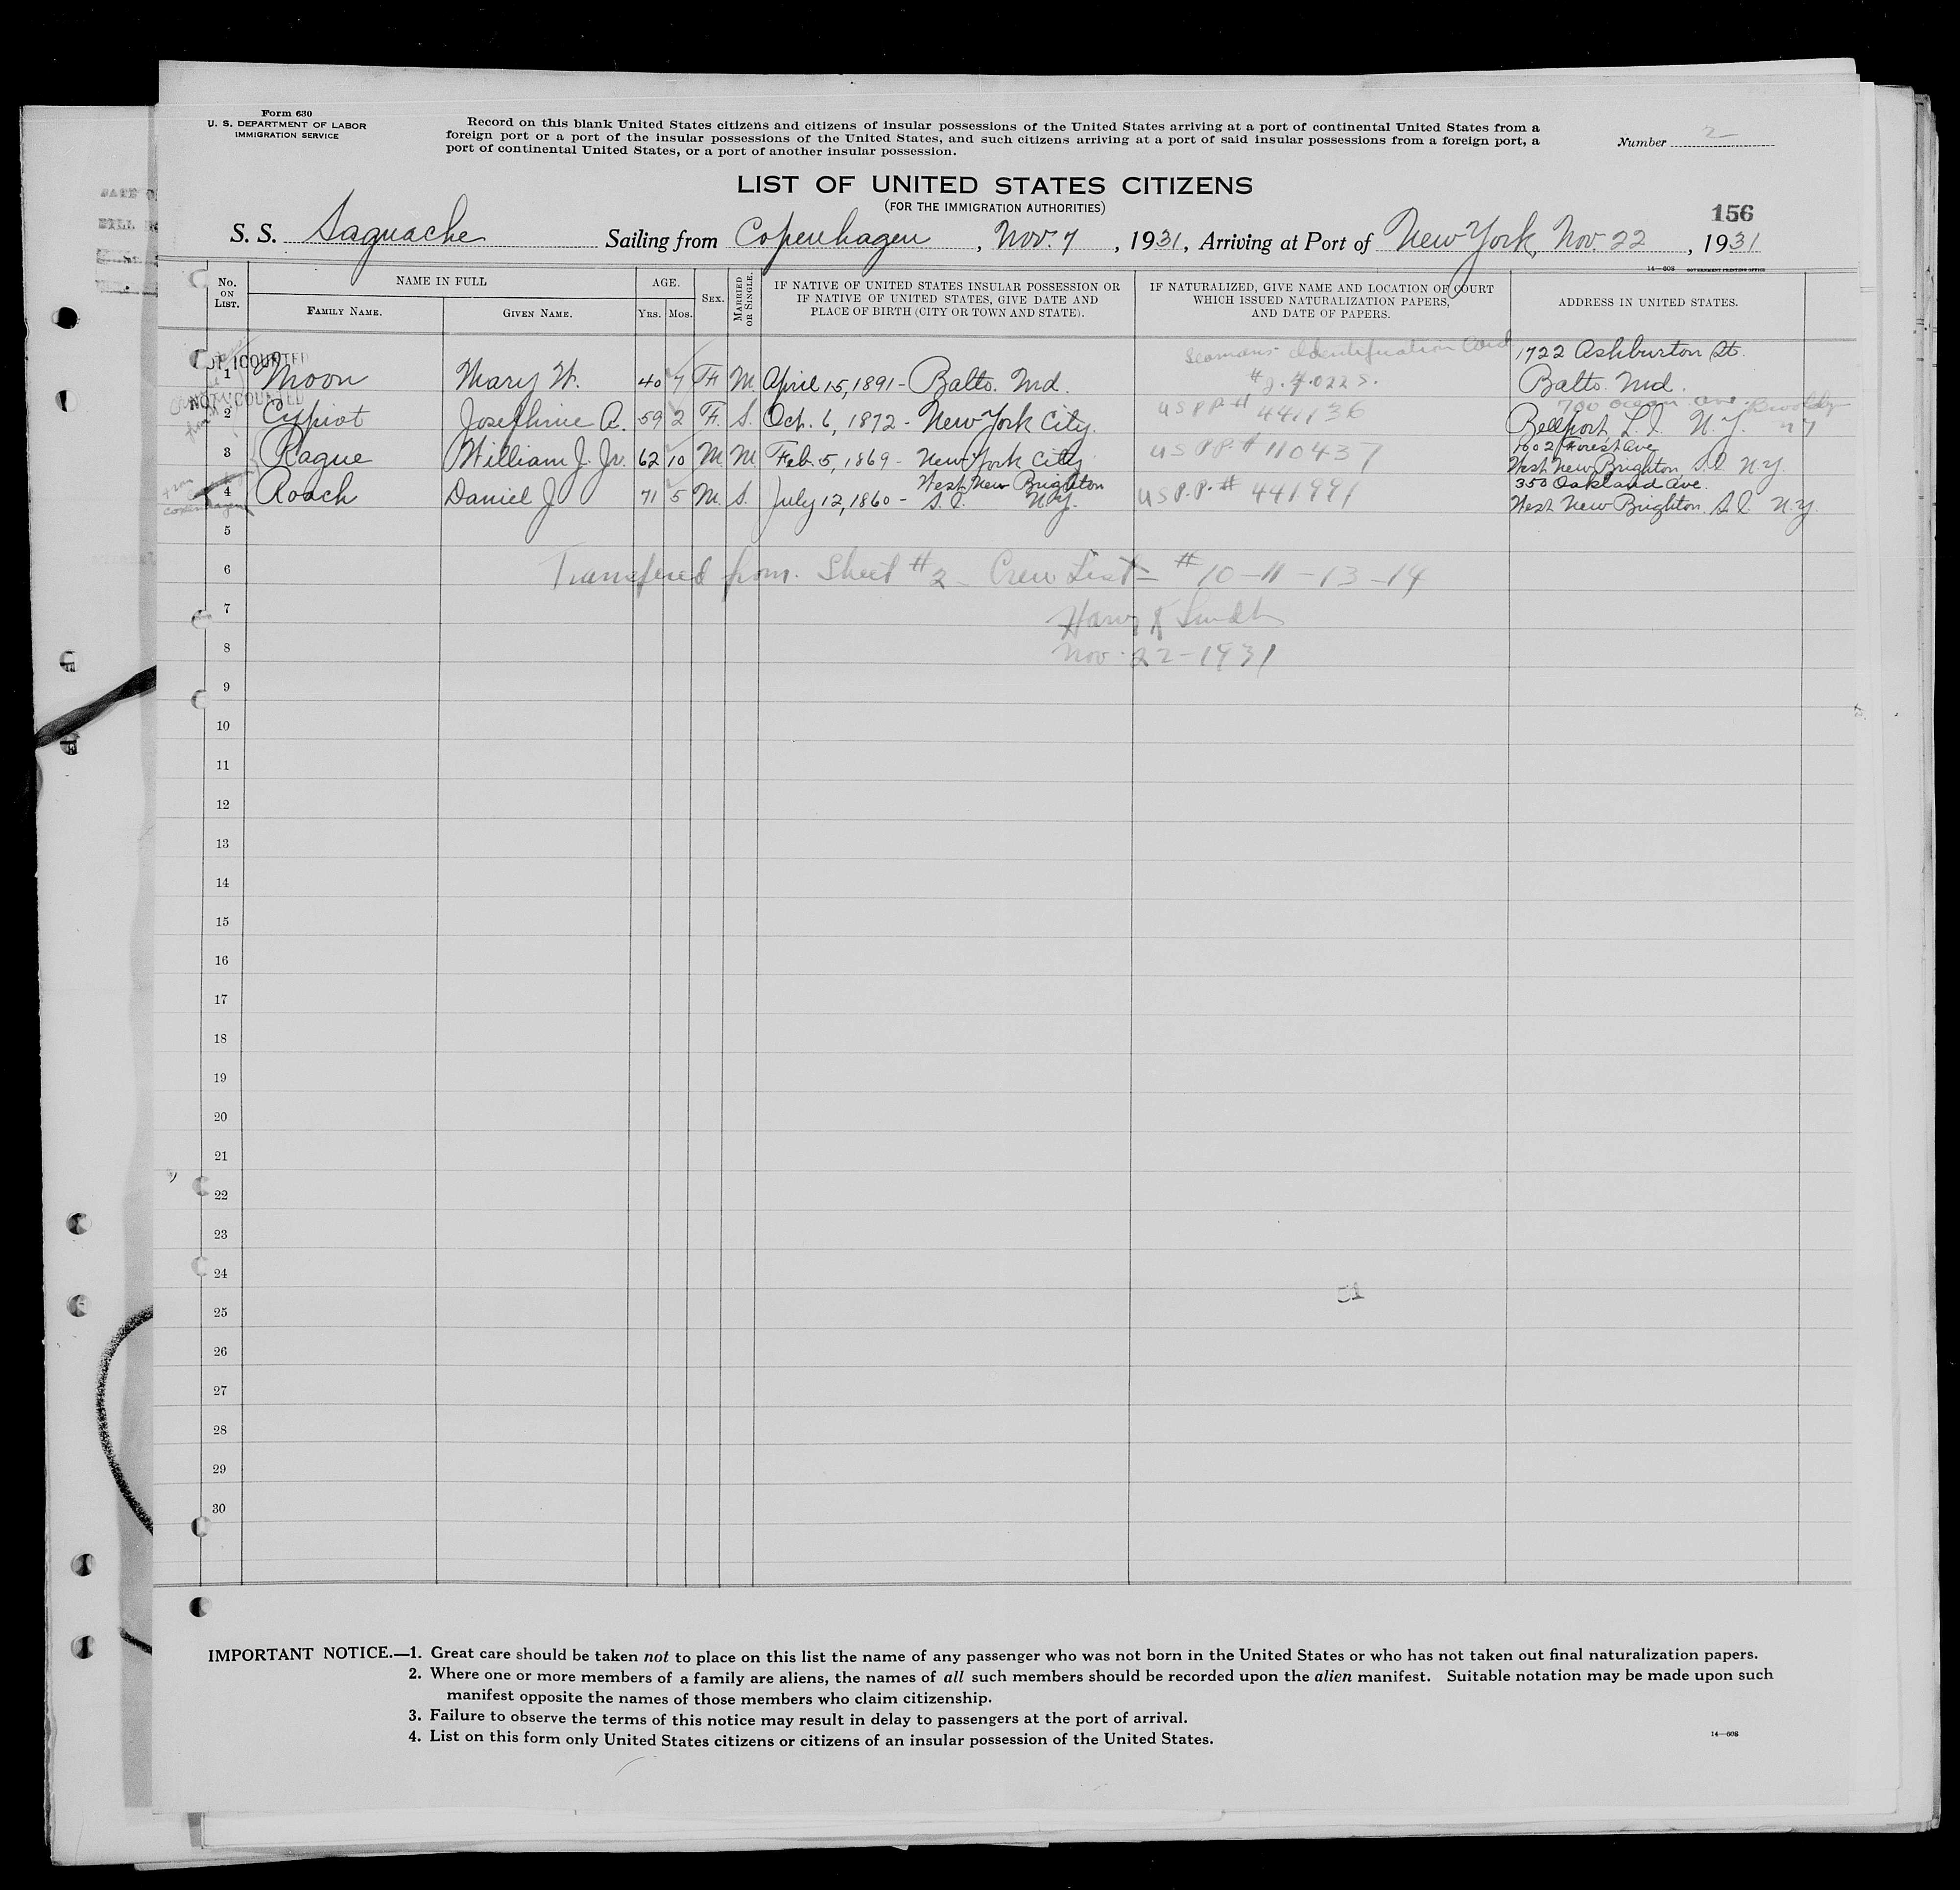 Form 630
U. S. DEPARTMENT OF LABOR
IMMIGRATION SERVICE
Record on this blank United States citizens and citizens of insular possessions of the United States arriving at a port of continental United States from a
foreign port or a port of the insular possessions of the United States, and such citizens arriving at a port of said insular possessions from a foreign port, a
port of continental United States, or a port of another insular possession.
Number 2
LIST OF UNITED STATES CITIZENS
(FOR THE IMMIGRATION AUTHORITIES)
156
S. S. Saguache Sailing from Copenhagen, Nov. 7, 1931, Arriving at Port of New York, Nov. 22, 1931
14—608 GOVERNMENT PRINTING OFFICE
No. ON LIST. NAME IN FULL AGE. SEX. MARRIED OR SINGLE. IF NATIVE OF UNITED STATES INSULAR POSSESSION OR IF NATIVE OF UNITED STATES, GIVE DATE AND PLACE OF BIRTH (CITY OR TOWN AND STATE). IF NATURALIZED, GIVE NAME AND LOCATION OF COURT WHICH ISSUED NATURALIZATION PAPERS, AND DATE OF PAPERS. ADDRESS IN UNITED STATES.
FAMILY NAME. GIVEN NAME. YRS. MOS.
NOT COUNTED
Seamans Identification Card 1722 Ashburton St.
1 Moon Mary W. 40 7 F M. April 15, 1891 - Balto. Md. Balto. Md.
NOT COUNTED
700 Ocean Ave. Brooklyn
2 Josephine A. 59 2 F. S. Oct. 6, 1872 - New York City. U S P P # 441136 Bellport, L. I. N. Y. N Y
1602 Forest Ave
3 Rague William J. Jr. 62 10 M M. Feb. 5, 1869 - New York City U S P P. # 110437 West New Brighton, S. I. N. Y.
West New Brighton 350 Oakland Ave.
4 Roach Daniel J 71 5 M. S. July 12, 1860 - S. I. N. Y. U S P. P. # 441991 West New Brighton. S. I. N. Y.
Copenhagen
5
6 Transfered from. Sheet # 2 - Crew List - # 10 - 11 - 13 - 14
7
8 Nov. 22 - 1931
9
10
11
12
13
14
15
16
17
18
19
20
21
22
23
24
25
26
27
28
29
30
IMPORTANT NOTICE.—1. Great care should be taken not to place on this list the name of any passenger who was not born in the United States or who has not taken out final naturalization papers.
2. Where one or more members of a family are aliens, the names of all such members should be recorded upon the alien manifest. Suitable notation may be made upon such
manifest opposite the names of those members who claim citizenship.
3. Failure to observe the terms of this notice may result in delay to passengers at the port of arrival.
4. List on this form only United States citizens or citizens of an insular possession of the United States.
14—608